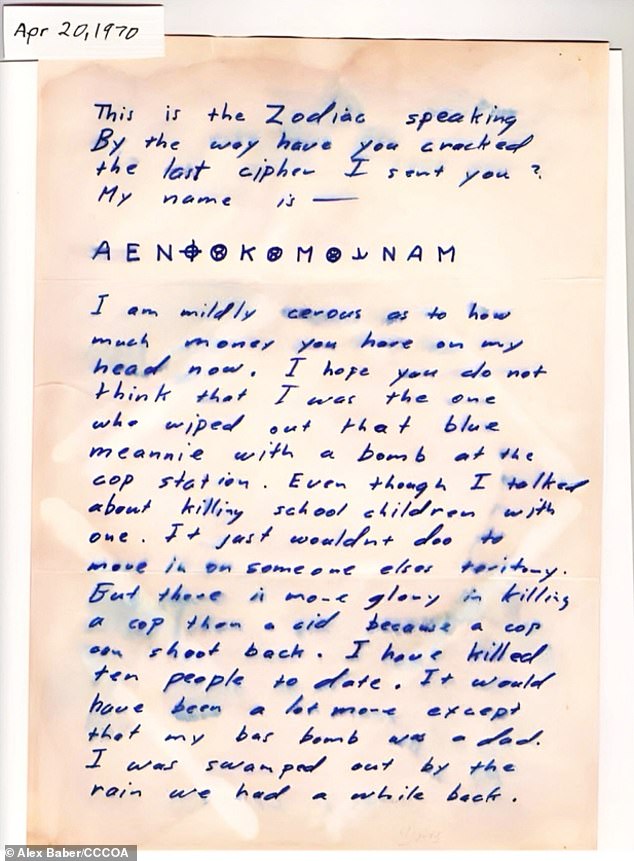 Apr 20, 1970
This is the Zodiac speaking
By the way have you cracked
the last cipher I sent you ?
My name is —
A E N ⌖ ⊗ K ⊗ M ⊗ ⅃ N A M
I am mildly cerous as to how
much money you have on my
head now. I hope you do not
think that I was the one
who wiped out that blue
meannie with a bomb at the
cop station. Even though I talked
about killing school children with
one. It just wouldnt doo to
move in on someone elses teritory.
But there is more glory in killing
a cop than a cid because a cop
can shoot back. I have killed
ten people to date. It would
have been a lot more except
that my bus bomb was a dud.
I was swamped out by the
rain we had a while back.
© Alex Baber/CCCOA